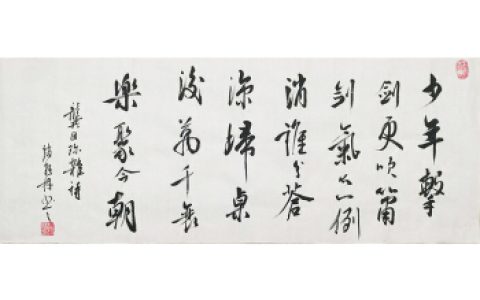 少年擊
劍更吹簫
劍氣心一例
消誰分蒼
涼歸桌
後萬千哀
樂聚今朝
龔自珍雜詩